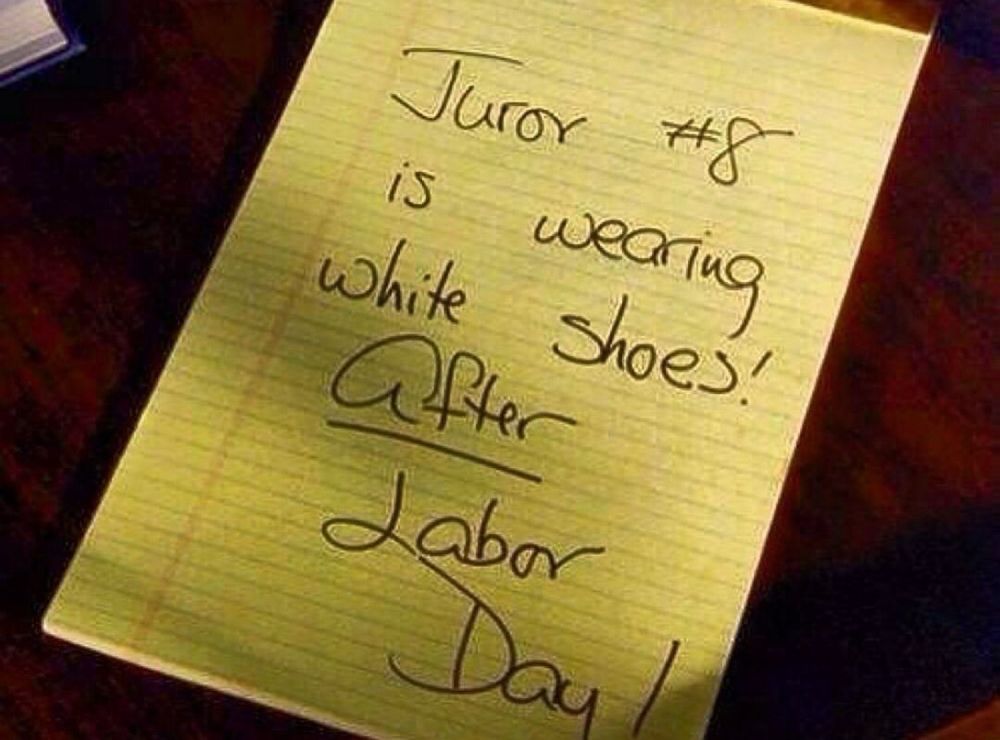 Juror #8
is wearing
white shoes!
After
Labor
Day!